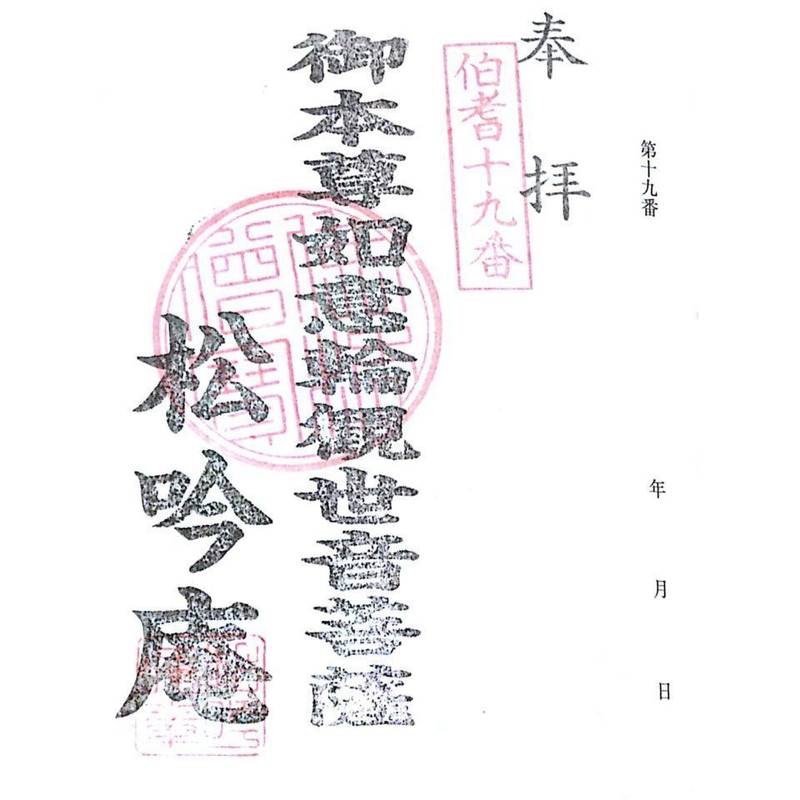 第十九番　年　月　日
奉拝
伯耆十九番
御本尊如意輪観世音菩薩
松吟庵